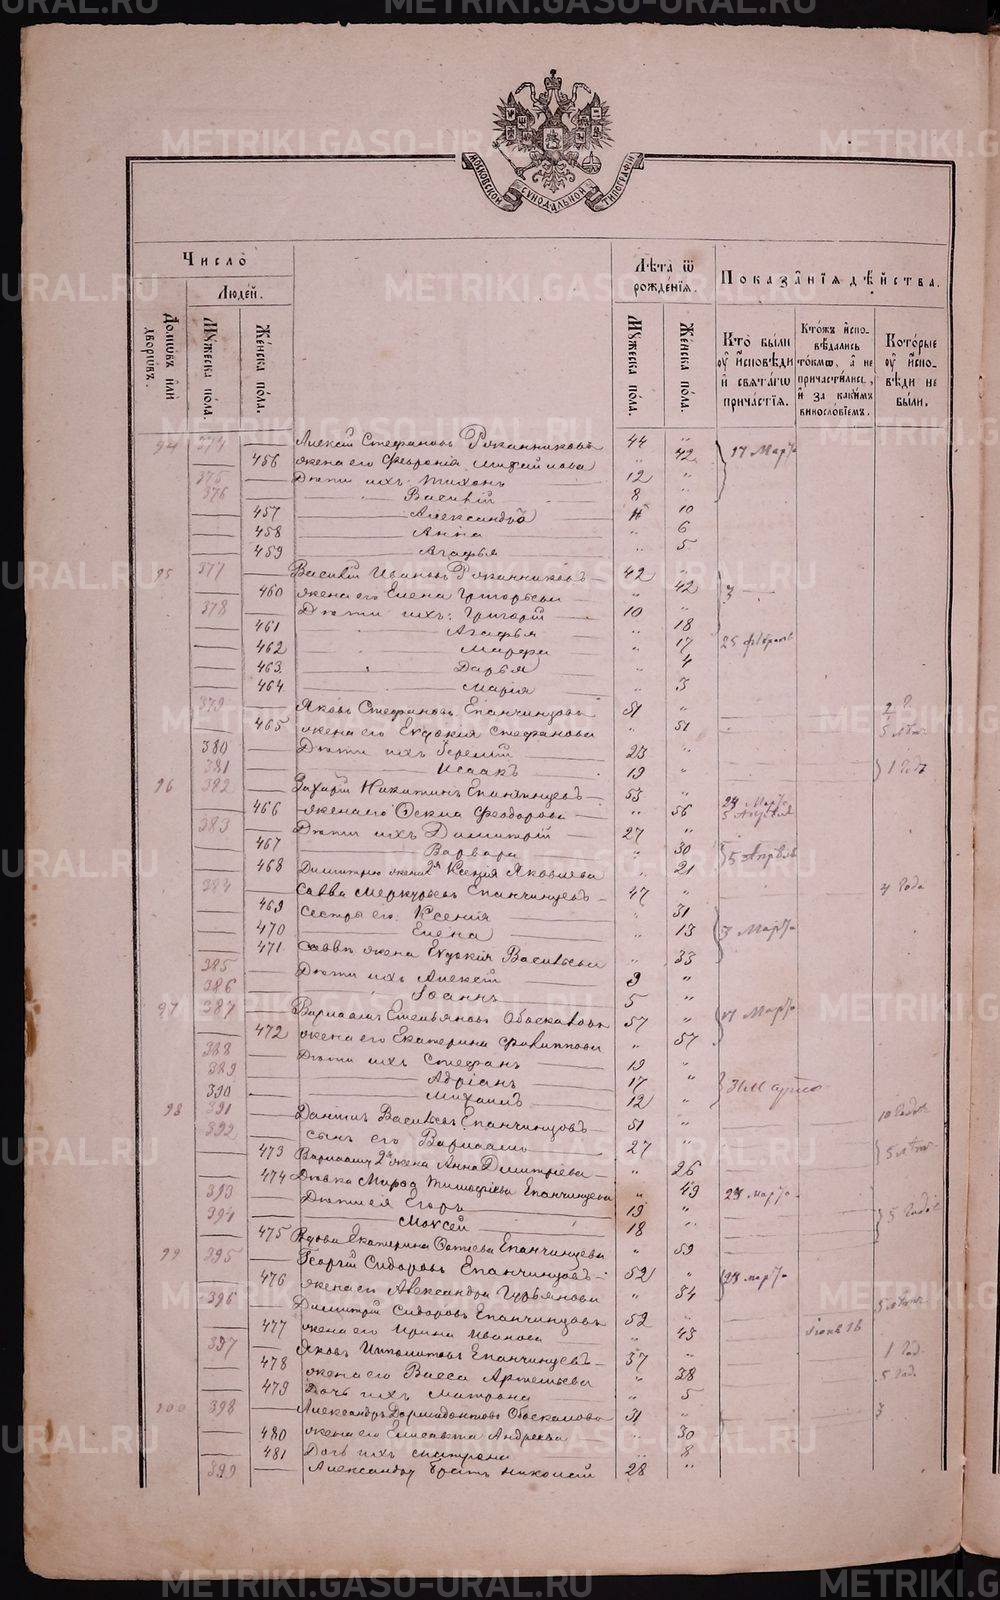 METRIKI.GASO-URAL.RU
МОСКОВСКОЙ СѴНОДАЛЬНОЙ ТИПОГРАФІИ
Число
Людей.
Домовъ или дворовъ.
Мужеска пола.
Женска пола.
Лѣта ѿ рожденія.
Мужеска пола.
Женска пола.
Показанія дѣйства.
Кто были у исповѣди и святаго причастія.
Ктожъ исповѣдались токмо, а не причастились, и за какимъ винословіемъ.
Которые у исповѣди не были.
94 374 Алексѣй Стефановъ Рожанниковъ 44 17 Марта
456 жена его Февронія Михайлова 42
375 Дѣти ихъ Тихонъ 12
376 Василій 8
457 Александра 10
458 Анна 6
459 Агафья 5
95 377 Василій Ивановъ Рожанниковъ 42
460 жена его Елена Григорьева 42
378 Дѣти ихъ: Григорій 10
461 Агафья 18
462 Марфа 17 25 февраля
463 Дарья 4
464 Марія 3
379 Яковъ Стефановъ Епанчинцовъ 51
465 жена его Евдокія Стефанова 51 5 лѣтъ
380 Дѣти ихъ Іеремій 23
381 Исаакъ 19 1 годъ
96 382 Захарій Никитинъ Епанчинцевъ 53
466 жена его Ѳеодорова 56 5 Апрѣля
383 Дѣти ихъ Димитрій 27
467 Варвара 30 5 Апрѣля
468 Димитрію жена 2я Ксенія Яковлева 21
384 Савва Меркурьевъ Епанчинцевъ 47 4 года
469 Сестры его: Ксенія 31
470 Елена 13 Марта
471 Саввѣ жена Евдокія Васильева 33
385 Дѣти ихъ Алексѣй 9
386 Іоаннъ 5
97 387 Варлаамъ Емельяновъ Обоскаловъ 57 17 Марта
472 жена его Екатерина Филиппова 57
388 Дѣти ихъ Стефанъ 19
389 Адріанъ 17 Марта
390 Михаилъ 12
98 391 Даніилъ Васильевъ Епанчинцовъ 51
392 сынъ его Варлаамъ 27 5 лѣтъ
473 Варлааму 2я жена Анна Димитріева 26
474 Дѣвка Тимофеева Епанчинцева 49 марта
393 Дѣти ея Егоръ 19
394 Моѵсей 18 5 годовъ
475 Вдова Екатерина Епанчинцева 59
99 395 Георгій Сидоровъ Епанчинцовъ 52 марта
476 жена его Александра Гурьянова 34
396 Димитрій Сидоровъ Епанчинцовъ 52 5 лѣтъ
477 жена его Ирина Иванова 43
397 Яковъ Ипполитовъ Епанчинцевъ 37 1 год.
478 жена его Васса Артемьева 38 5 год.
479 Дочь ихъ Матрона 5
100 398 Александръ Дормидонтовъ Обоскаловъ 31
480 жена его Елисавета Андреева 30
481 Дочь ихъ Матрона 8
399 Александру братъ Николай 28